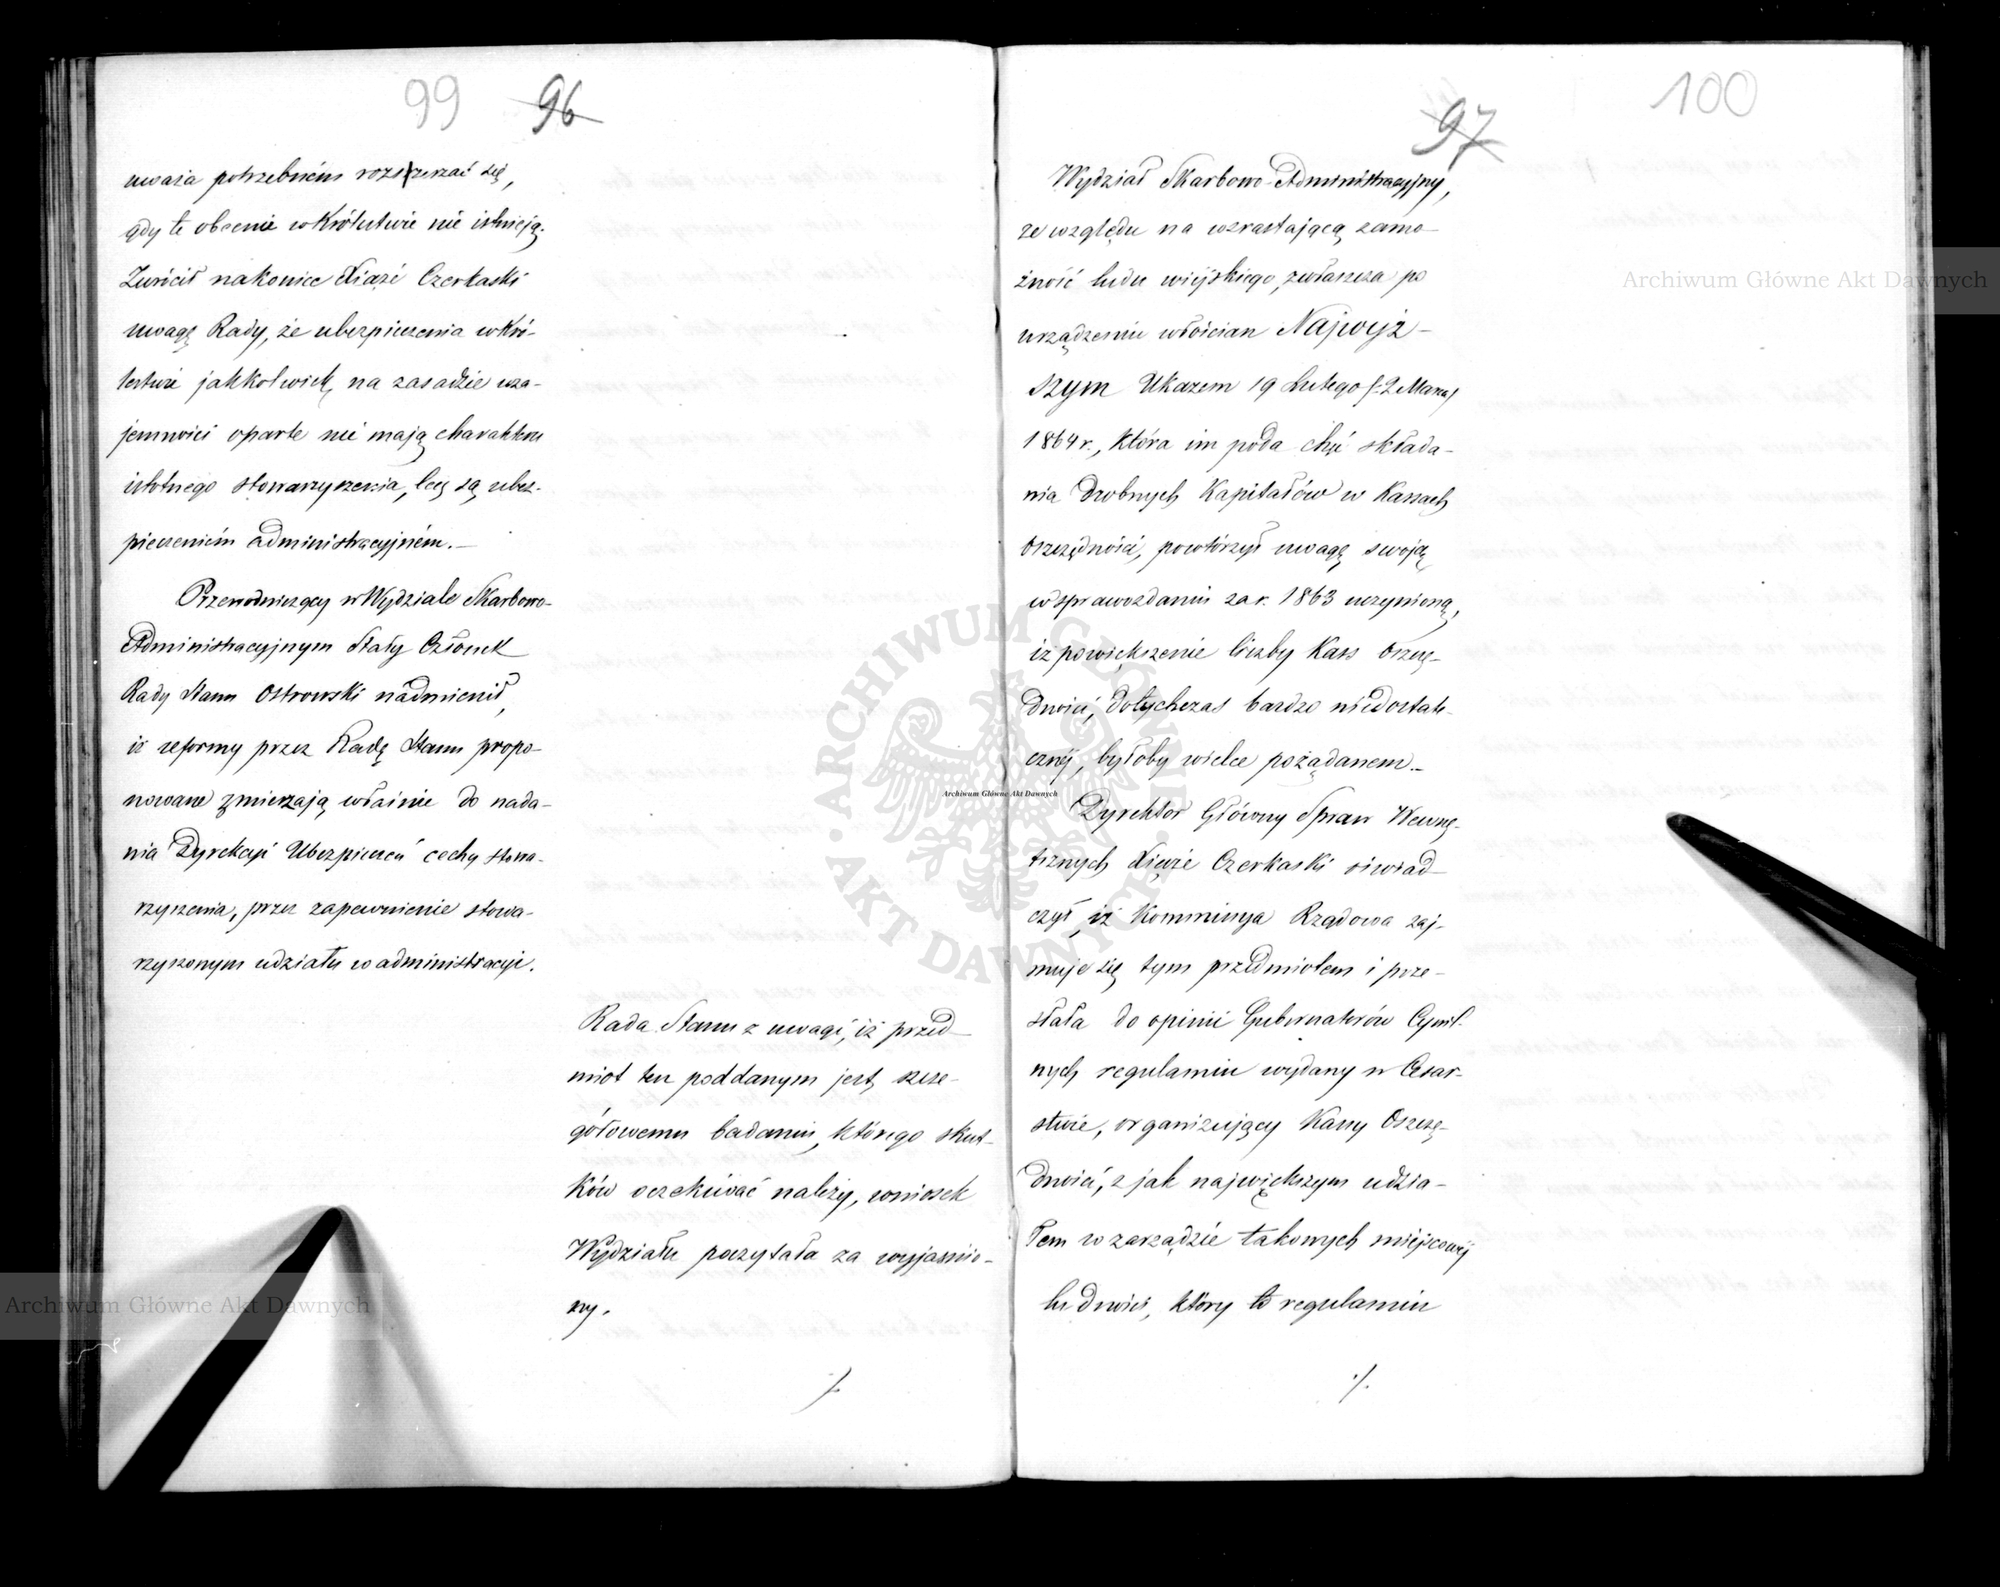 99 96
uważa potrzebném rozszerzać się,
gdy te obecnie w Królestwie nie istnieją.
Zwrócił nakoniec Xiąże Czerkaski
uwagę Rady, że ubezpieczenia w Kró-
lestwie jakkolwiek na zasadzie wza-
jemności oparte nie mają charakteru
istotnego stowarzyszenia, lecz są ubez-
pieczeniem administracyjném.—
Przewodniczący w Wydziale Skarbowo-
Administracyjnym Stały Członek
Rady Stanu Ostrowski nadmienił,
iż reformy przez Radę Stanu propo-
nowane zmierzają właśnie do nada-
nia Dyrekcyi Ubezpieczeń cechy stowa-
rzyszenia, przez zapewnienie stowa-
rzyszonym udziału w administracyi.
Rada Stanu z uwagi, iż przed-
miot ten poddanym jest szcze-
gółowemu badaniu, którego skut-
ków oczekiwać należy, wniosek
Wydziału poczytała za wyjaśnio-
ny.
./.
97 100
Wydział Skarbowo-Administracyjny,
ze względu na wzrastającą zamo-
żność ludu wiejskiego, zwłaszcza po
urządzeniu włościan Najwyż-
szym Ukazem 19 Lutego /:2 Marca/
1864 r., która im poda chęć składa-
nia drobnych Kapitałów w Kassach
Oszczędności, powtórzył uwagę swoją
w sprawozdaniu za r. 1863 uczynioną,
iż powiększenie liczby Kass Oszczę-
dności, dotychczas bardzo niedostate-
cznéj, byłoby wielce pożądanem.—
Dyrektor Główny Spraw Wewnę-
trznych Xiąże Czerkaski oświad-
czył, iż Kommissya Rządowa zaj-
muje się tym przedmiotem i prze-
słała do opinii Gubernatorów Cywil-
nych regulamin wydany w Cesar-
stwie, organizujący Kassy Oszczę-
dności, z jak największym udzia-
łem w zarządzie takowych miejscowéj
ludności, który to regulamin
./.
Archiwum Główne Akt Dawnych
Archiwum Główne Akt Dawnych
Archiwum Główne Akt Dawnych
ARCHIWUM GŁÓWNE AKT DAWNYCH